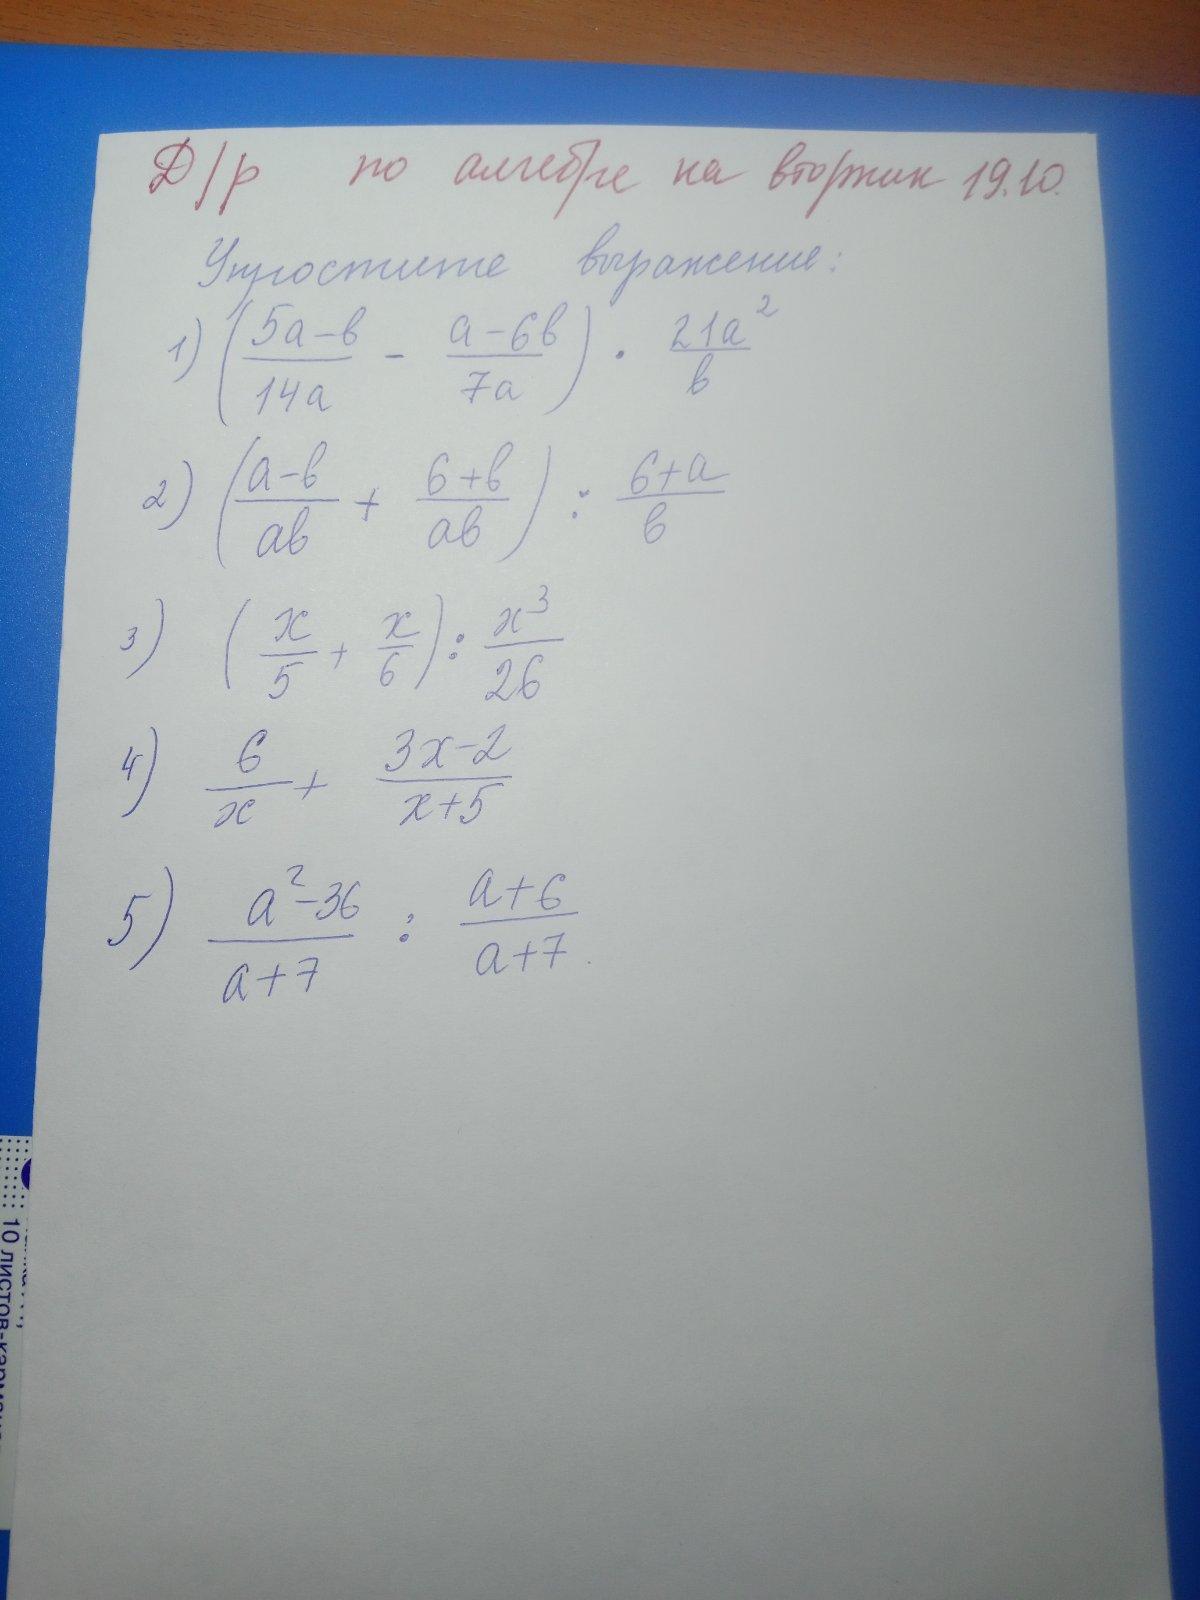 Д/р по алгебре на вторник 19.10.
Упростите выражение:
1) (5a-b/14a - a-6b/7a) · 21a²/b
2) (a-b/ab + 6+b/ab) : 6+a/b
3) (x/5 + x/6) : x³/26
4) 6/x + 3x-2/x+5
5) a²-36/a+7 : a+6/a+7.
10 листов-карман